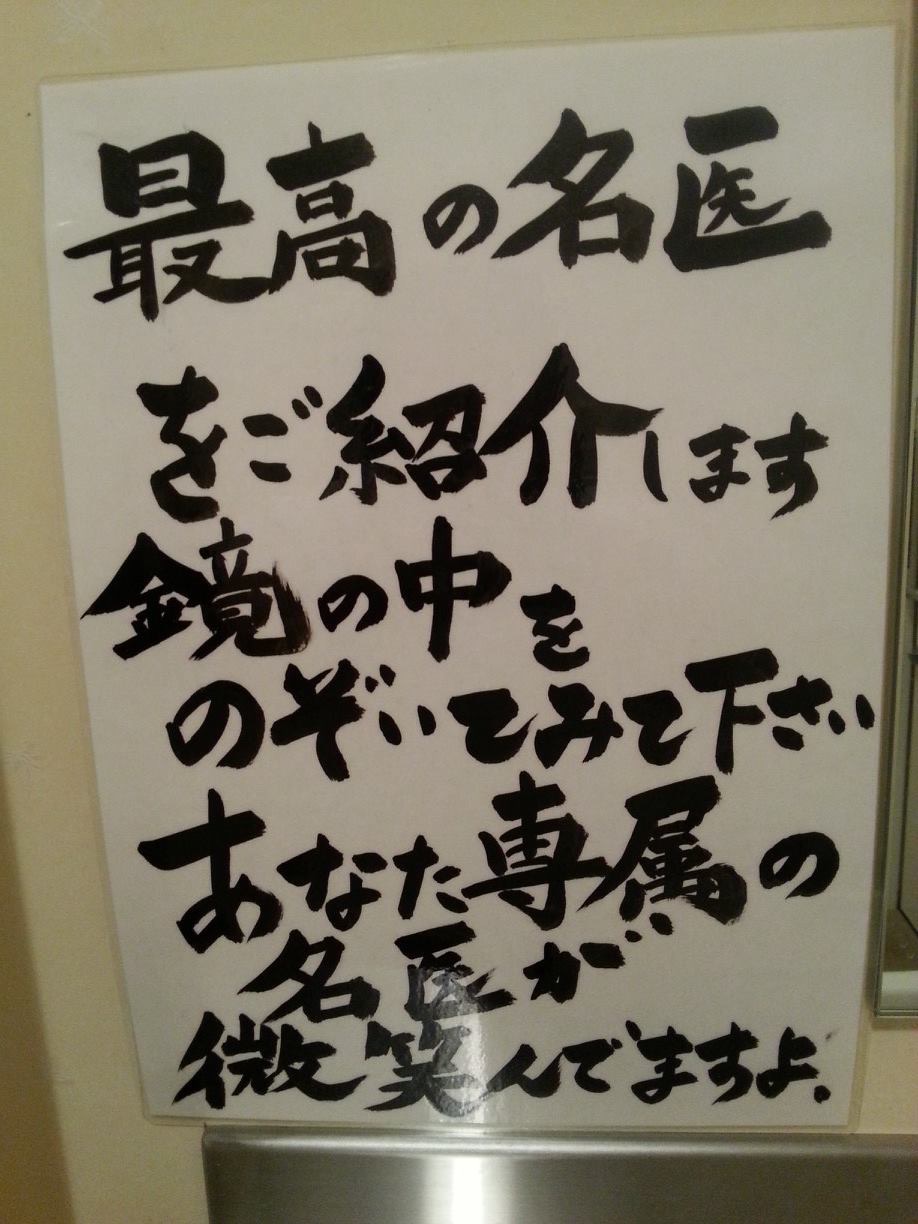 最高の名医
をご紹介します
鏡の中を
のぞいてみて下さい
あなた専属の
名医が
微笑んでますよ。